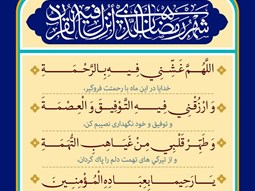 شهر رمضان الذی انزل فیه القرآن
اللَّهُمَّ غَشِّنِي فِيهِ بِالرَّحْمَةِ
خدایا در این ماه با رحمتت فروگیر،
وَ ارْزُقْنِي فِيهِ التَّوْفِيقَ وَ الْعِصْمَةَ
و توفیق و خود نگهداری نصیبم کن،
وَ طَهِّرْ قَلْبِي مِنْ غَيَاهِبِ التُّهَمَةِ
و از تیرگی های تهمت دلم را پاک گردان،
يَا رَحِيماً بِعِبَادِهِ الْمُؤْمِنِينَ